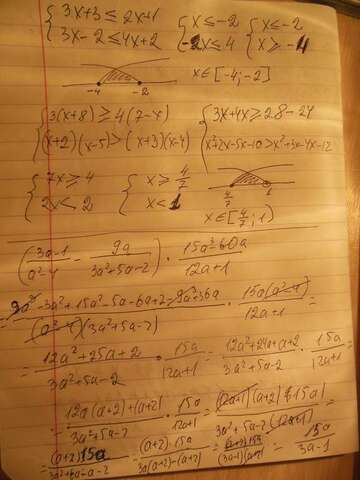 { 3x+3 ≤ 2x+1 { x ≤ -2 { x ≤ -2
{ 3x-2 ≤ 4x+2 { -x ≤ 4 { x ≥ -4
-4 -2 x ∈ [-4; -2]
{ 3(x+8) ≥ 4(7-x) { 3x+4x ≥ 28-24
{ (x+2)(x-5) > (x+3)(x-4) { x²+2x-5x-10 > x²+3x-4x-12
{ 7x ≥ 4 { x ≥ 4/7
{ 2x < 2 { x < 1 4/7 1
x ∈ [4/7; 1)
(3a-1/a²-4 - 9a/3a²+5a-2) · 15a³-60a/12a+1
· 15a(a²-4)/12a+1 =
(a²-4)(3a²+5a-2)
= 12a²+25a+2/3a²+5a-2 · 15a/12a+1 = 12a²+24a+a+2/3a²+5a-2 · 15a/12a+1 =
12a(a+2)+(a+2)/3a²+5a-2 · 15a/12a+1 = (12a+1)(a+2)·15a/3a²+5a-2(12a+1) =
= (a+2)·15a/3a²+6a-a-2 = (a+2)·15a/3a(a+2)-(a+2) = (a+2)15a/(3a-1)(a+2) = 15a/3a-1